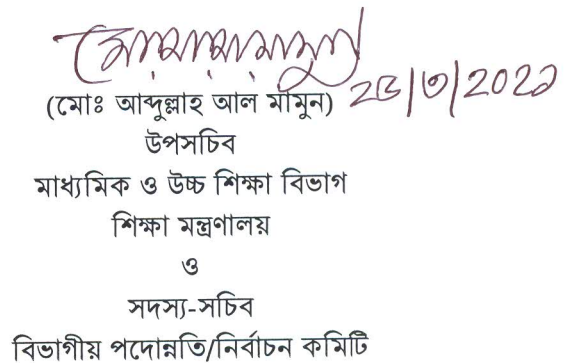 (মোঃ আব্দুল্লাহ আল মামুন)
উপসচিব
মাধ্যমিক ও উচ্চ শিক্ষা বিভাগ
শিক্ষা মন্ত্রণালয়
ও
সদস্য-সচিব
বিভাগীয় পদোন্নতি/নির্বাচন কমিটি